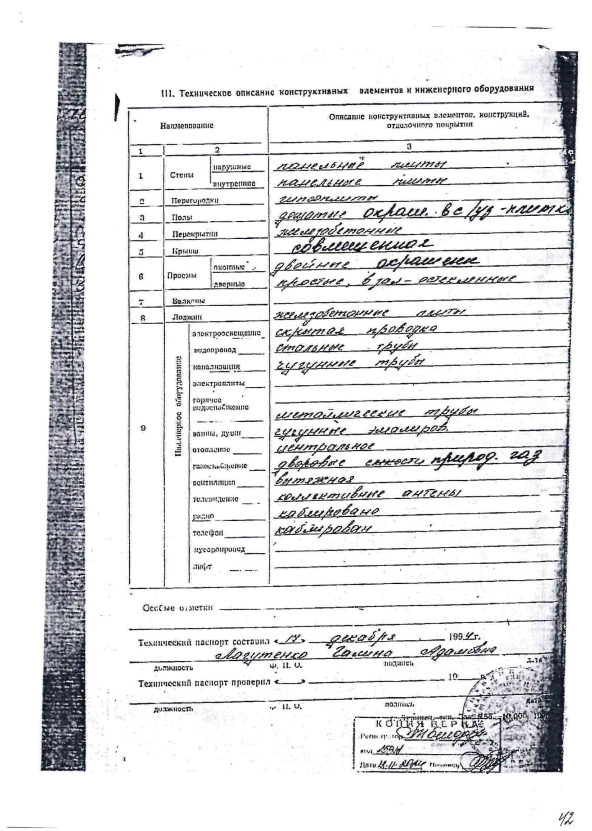 III. Техническое описание конструктивных элементов и инженерного оборудования
Наименование
Описание конструктивных элементов, конструкций, отделочного покрытия
1 2 3
1 Стены наружные панельные плиты
внутренние панельные плиты
2 Перегородки гипсоплиты
3 Полы дощатые окраш. в с/уз - плитка
4 Перекрытия железобетонные
5 Крыша совмещенная
6 Проемы оконные двойные окрашен
дверные простые, в зал - остекленные
7 Балконы
8 Лоджии железобетонные плиты
9 Инженерное оборудование
электроосвещение скрытая проводка
водопровод стальные трубы
канализация чугунные трубы
электроплиты
горячее водоснабжение металлические трубы
ванны, души чугунные эмалиров
отопление центральное
газоснабжение дворовые емкости природ. газ
вентиляция вытяжная
телевидение коллективные антены
радио каблировано
телефон каблирован
мусоропровод
лифт
Особые отметки
Технический паспорт составил « 17 » декабря 1994 г.
Лагутенко Галина Адамовна
должность Ф. И. О. подпись
Технический паспорт проверил « » 19
должность Ф. И. О. подпись
КОПИЯ ВЕРНА
Регистратор
код
Дата Подпись
42